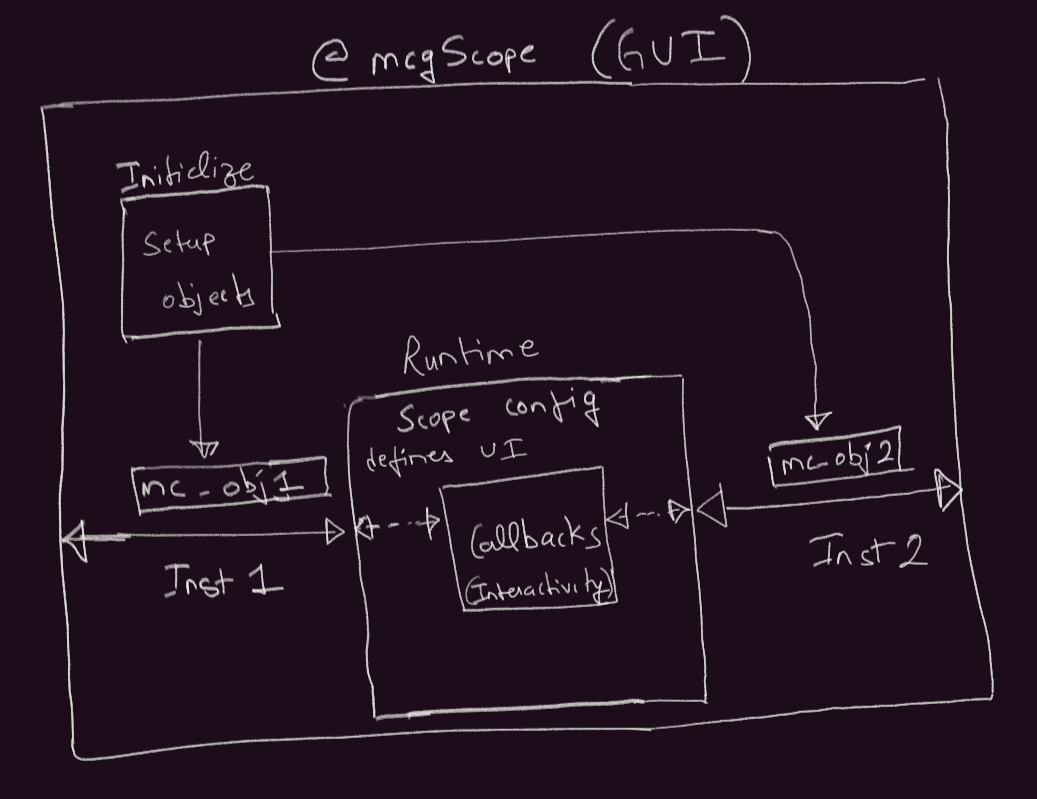 @ mcgScope (GUI)
Initialize
Setup
objects
Runtime
Scope config
defines UI
mc_obj1
mc_obj2
Callbacks
(Interactivity)
Inst 1
Inst 2